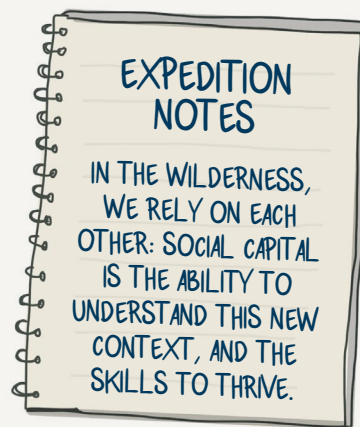 EXPEDITION
NOTES
IN THE WILDERNESS,
WE RELY ON EACH
OTHER: SOCIAL CAPITAL
IS THE ABILITY TO
UNDERSTAND THIS NEW
CONTEXT, AND THE
SKILLS TO THRIVE.